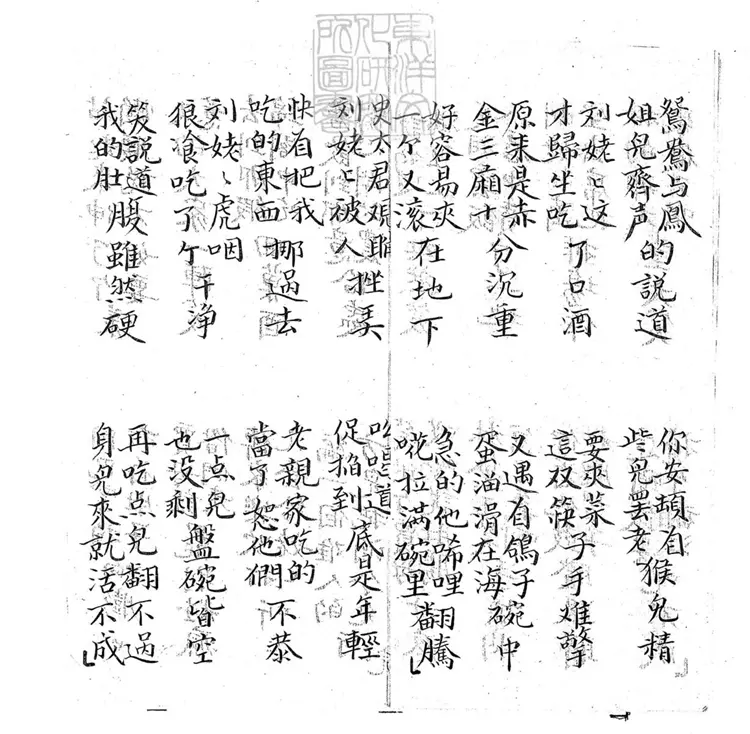 鴛鴦与鳳姐兒齊声的說道
你安頓自些兒罷老猴兒精
刘姥〻这才歸坐吃了口酒
要夾菜這双筷子手难擎
原来是赤金三廂十分沉重
又遇自鴿子蛋溜滑在海碗中
好容易夾一个又滚在地下
急的他唏哩唿拉滿碗里翻騰
史太君观瞧刘姥〻被人拴弄
吆喝道促掐到底是年輕
快自把我吃的東西挪過去
老親家吃的當了恕他們不恭
刘姥〻虎咽狼飡吃了个干净
一点兒也没剩盤碗皆空
笑說道我的肚腹雖然硬
再吃点兒翻不過身兒來就活不成